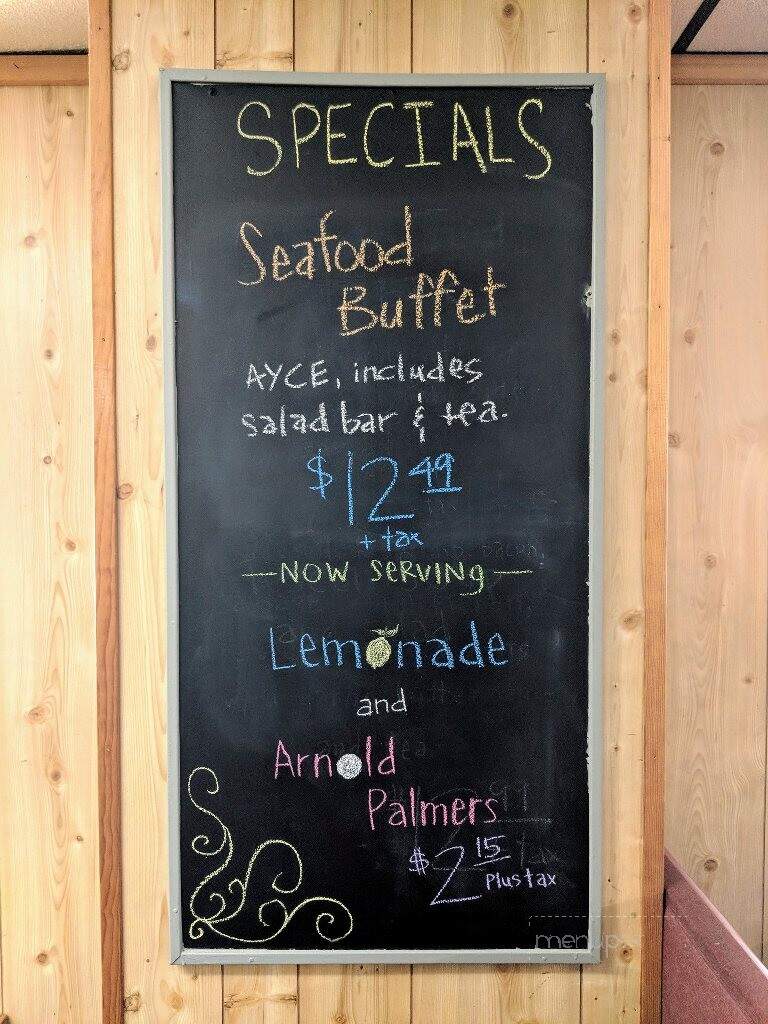 SPECIALS
Seafood
Buffet
AYCE, includes
salad bar & tea.
$12 49
+ tax
—NOW SERVING—
Lemonade
and
Arnold
Palmers
$2 15
Plus tax
menu